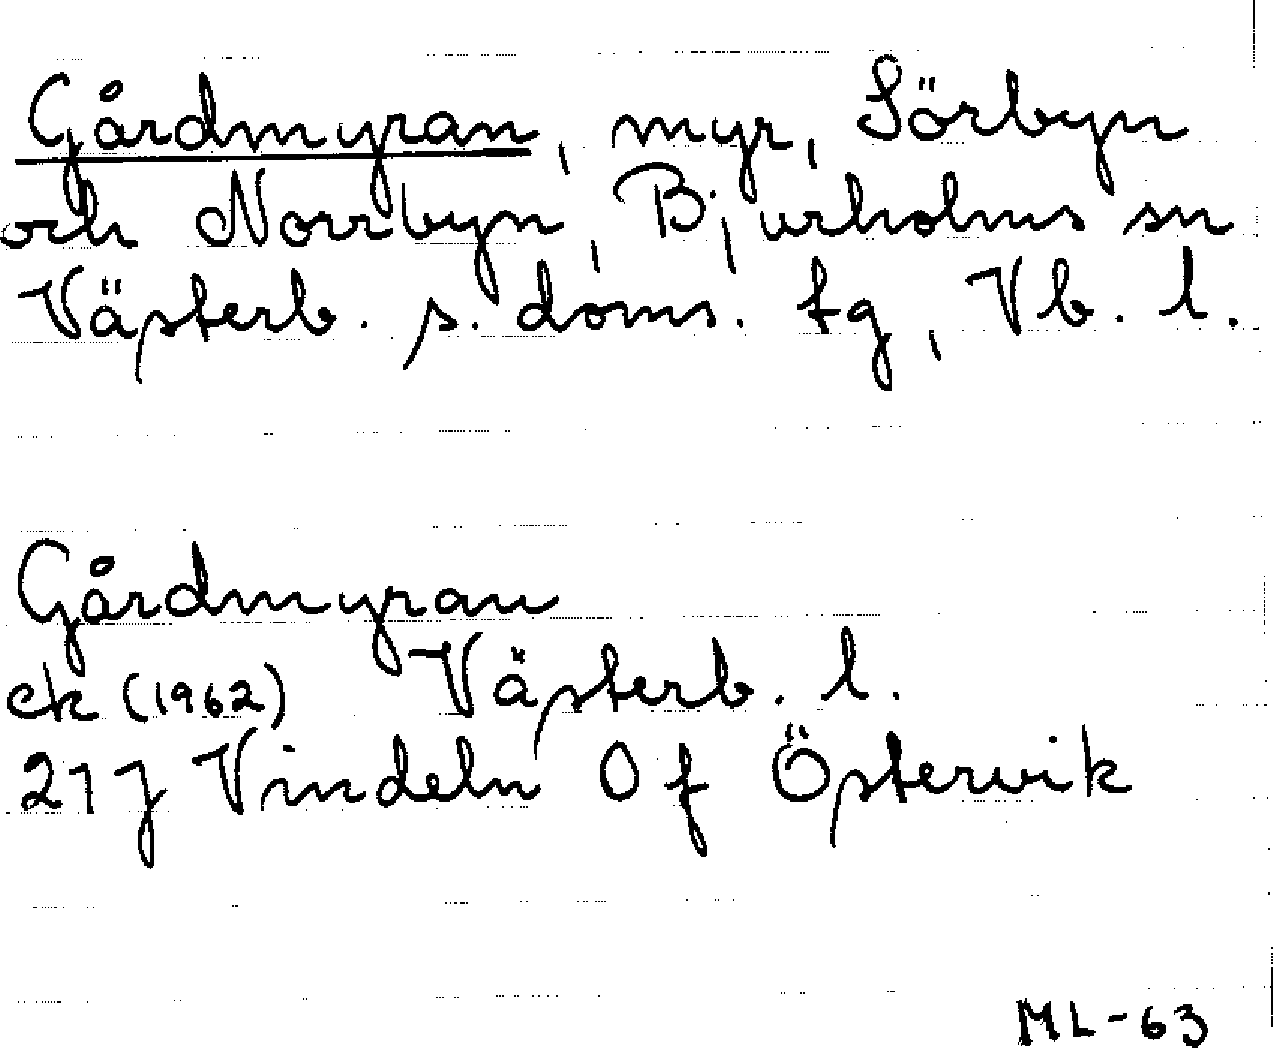 Gårdmyran, myr, Sörbyn
och Norrbyn, Bjurholms sn
Västerb. s. doms. tg, Vb. l.
Gårdmyran
ek (1962) Västerb. l.
21J Vindeln 0f Östervik
ML-63